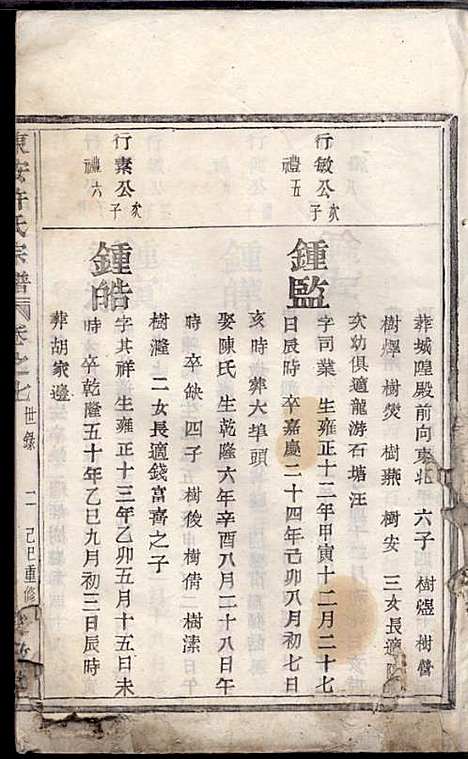 葬城隍殿前向東北 六子 樹煜 樹營
樹燡 樹熒 樹燕 樹安 三女長適
次幼俱適龍游石塘汪
行敏公次子
禮五
鍾監
字司業 生雍正十二年甲寅十二月二十七
日辰時卒嘉慶二十四年己卯八月初七日
亥時葬大埠頭
娶陳氏生乾隆六年辛酉八月二十八日午
時卒缺四子 樹俊 樹倩 樹潆
樹瀍 二女長適錢富斋之子
行素公次子
禮六
鍾皓
字其祥生雍正十三年乙卯五月十五日未
時卒乾隆五十年乙巳九月初三日辰時
葬胡家邊
東安許氏宗譜 卷之七 世錄 二 己巳重修